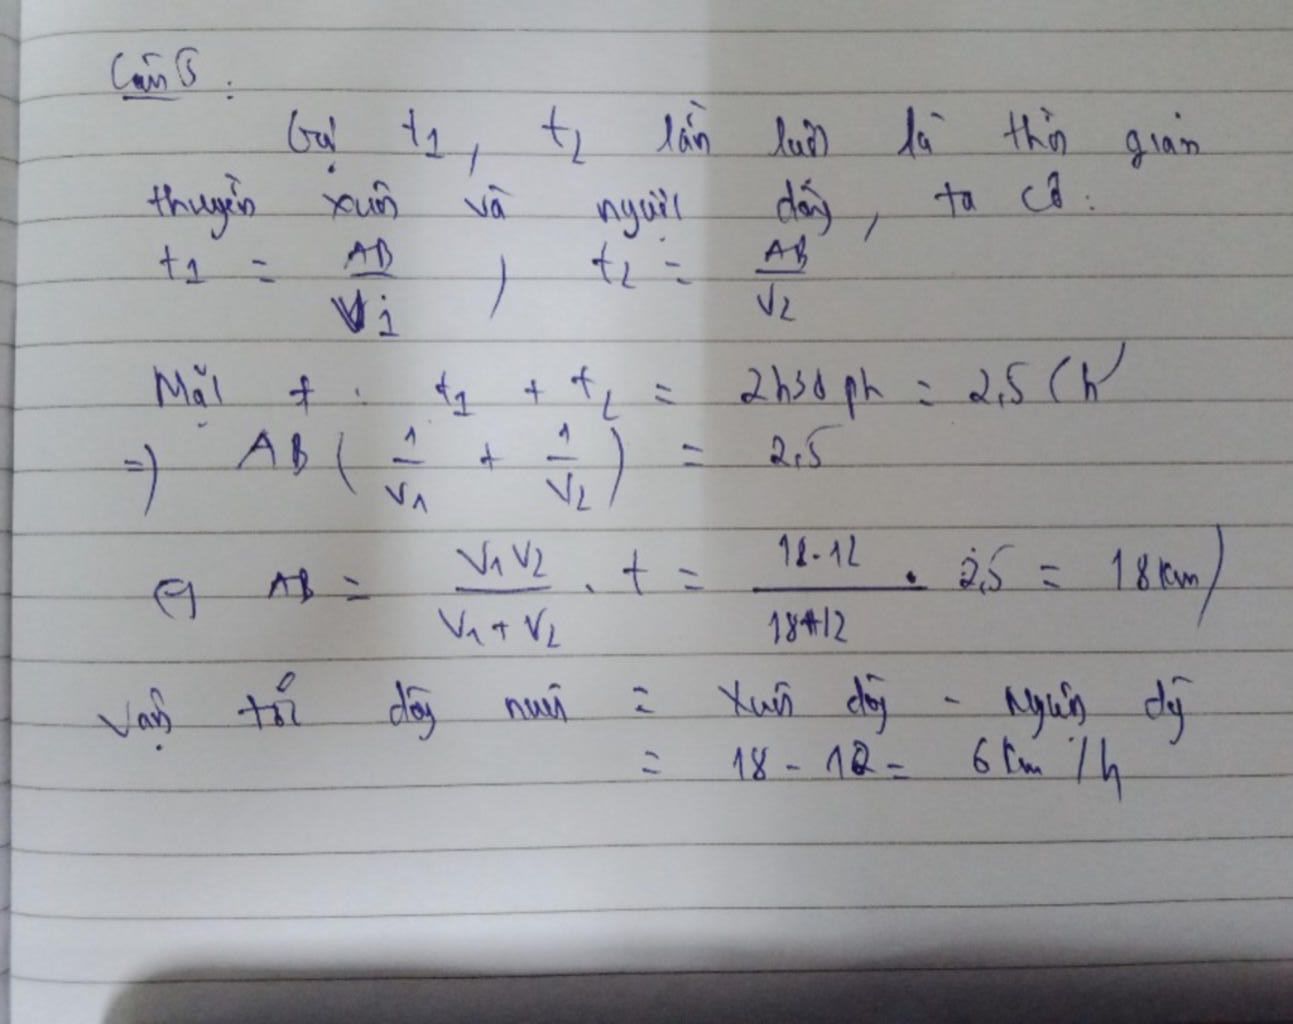 Câu 5:
Gọi t1, t2 lần lượt là thời gian
thuyền xuôi và ngược dòng, ta có:
t1 = AB/V1, t2 = AB/V2
Mặt ≠: t1 + t2 = 2h30ph = 2,5 (h)
=> AB(1/V1 + 1/V2) = 2,5
<=> AB = V1V2/(V1 + V2) . t = 18.12/(18+12) . 2,5 = 18km)
Vận tốc dòng nước = Xuôi dòng - Ngược dòng
= 18 - 12 = 6km/h